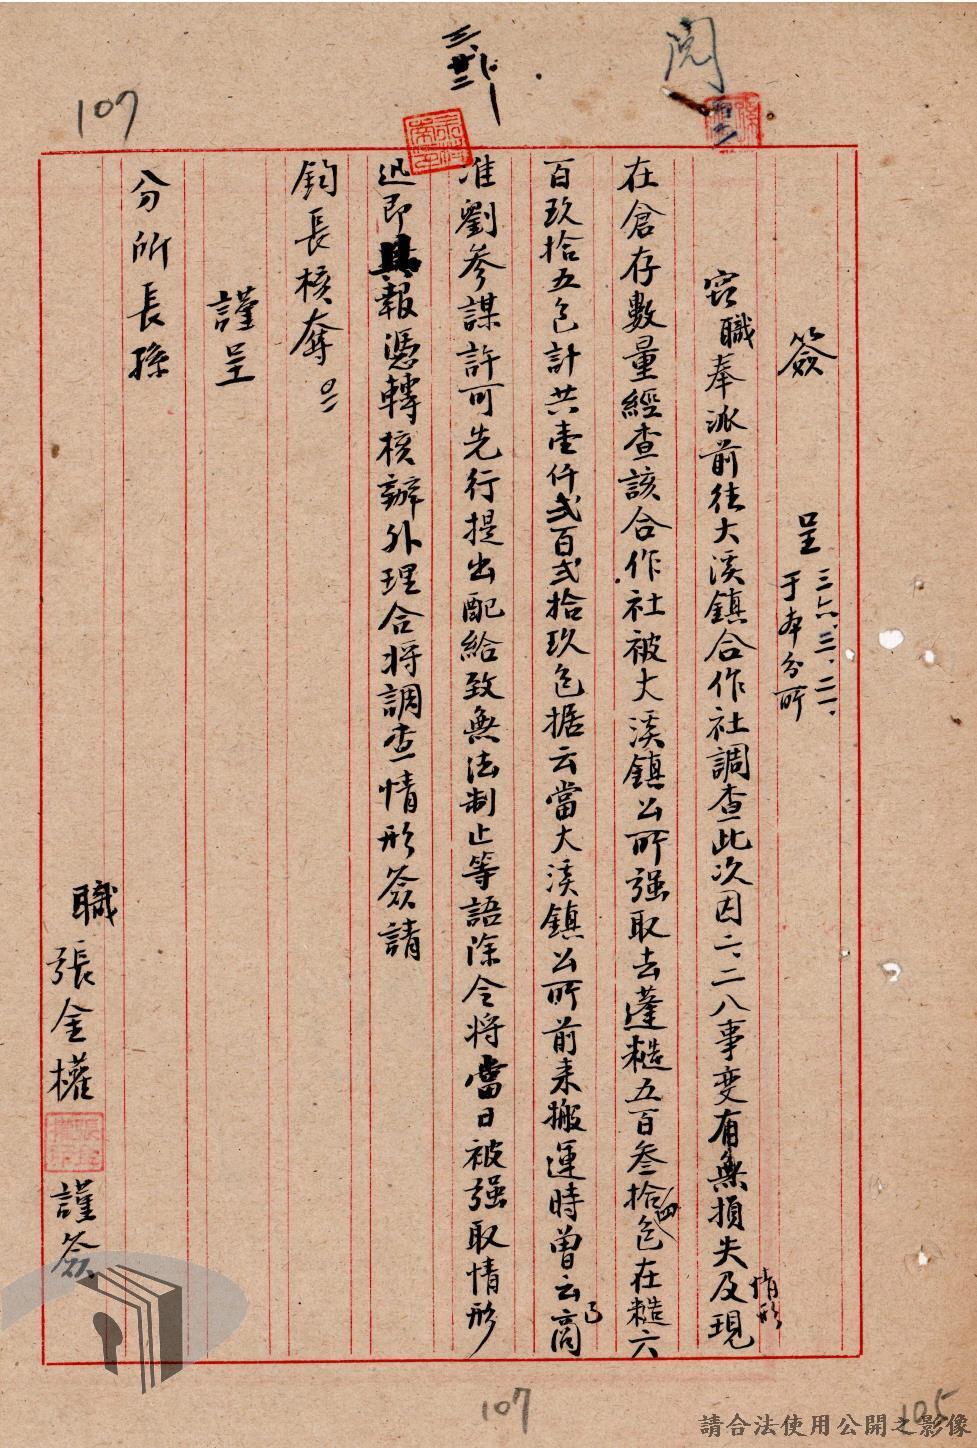 閱
三、廿二
107
簽 呈 三六、三、二一、
于本分所
窃職奉派前往大溪鎮合作社調查此次因二、二八事变有無損失情形及現
在倉存數量經查該合作社被大溪鎮公所强取去蓬糙五百叁拾四包在糙六
百玖拾五包計共壹仟弍百弍拾玖包据云當大溪鎮公所前来搬運時曾云商
准劉參謀許可先行提出配給致無法制止等語除令将當日被强取情形
迅即具報憑轉核辦外理合将調查情形簽請
鈞長核奪
謹呈
分所長孫
職 張金權 謹簽
107
105
請合法使用公開之影像